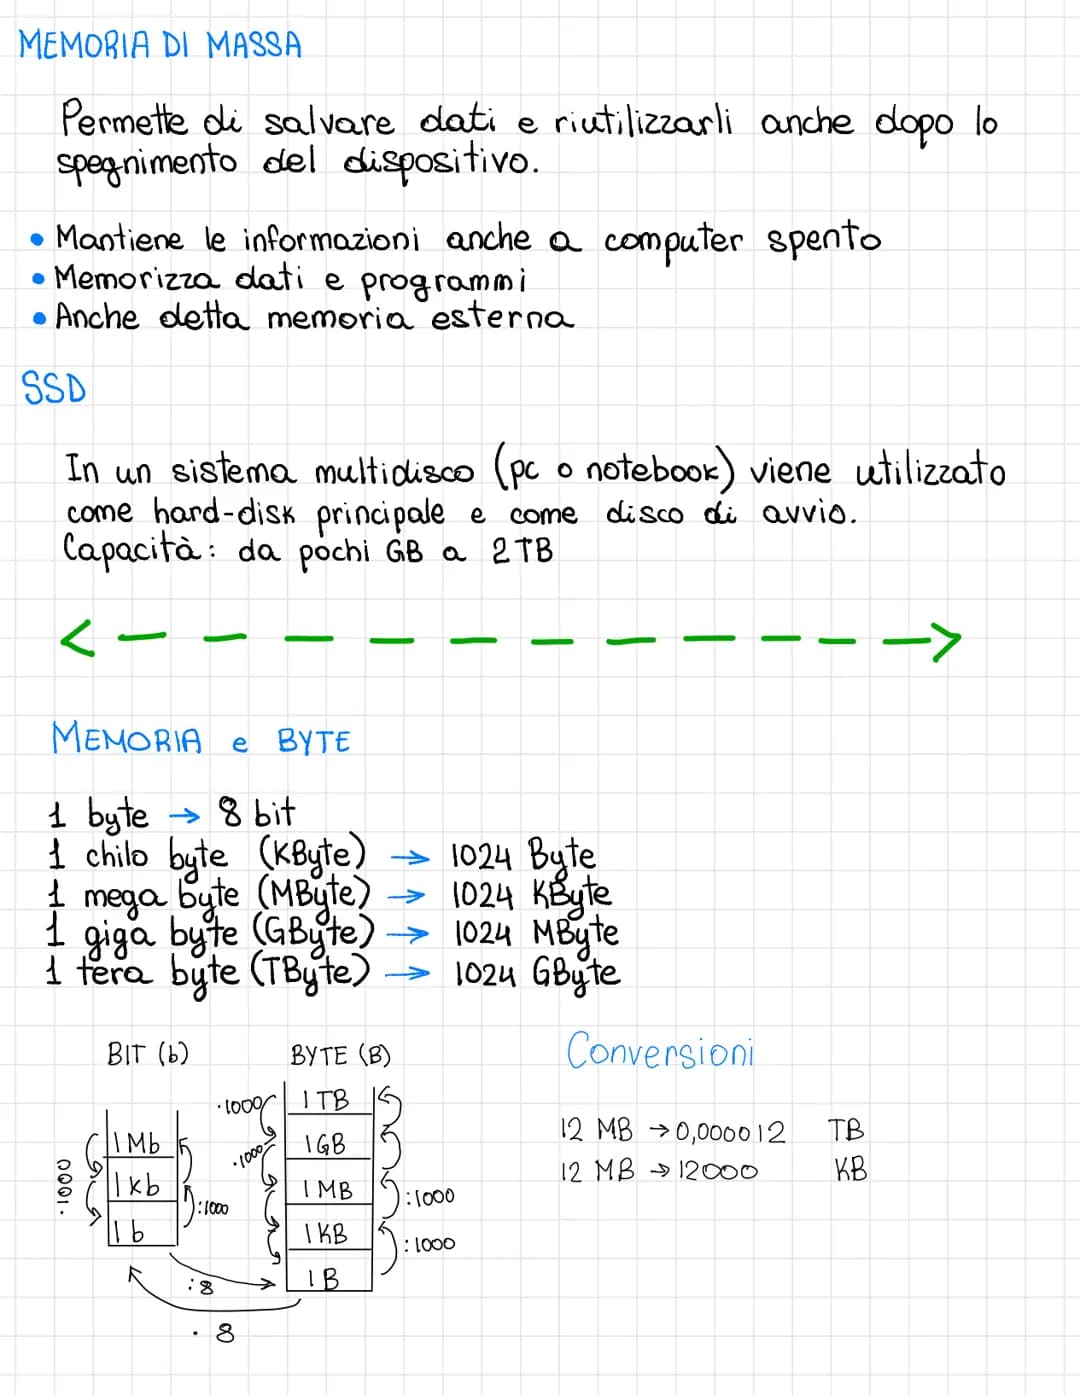 MEMORIA DI MASSA
Permette di salvare dati e riutilizzarli anche dopo lo
spegnimento del dispositivo.
• Mantiene le informazioni anche a computer spento
• Memorizza dati e programmi
• Anche detta memoria esterna
SSD
In un sistema multidisco (pc o notebook) viene utilizzato
come hard-disk principale e come disco di avvio.
Capacità: da pochi GB a 2TB
MEMORIA e BYTE
1 byte → 8 bit
1 chilo byte (KByte) → 1024 Byte
1 mega byte (MByte) → 1024 KByte
1 giga byte (GByte) → 1024 MByte
1 tera byte (TByte) → 1024 GByte
BIT (b)
1Mb
1kb
1b
·1000
:1000
BYTE (B)
1TB
1GB
1MB
1KB
1B
·1000
·1000
:1000
:1000
:8
· 8
Conversioni
12 MB → 0,000012 TB
12 MB → 12000 KB